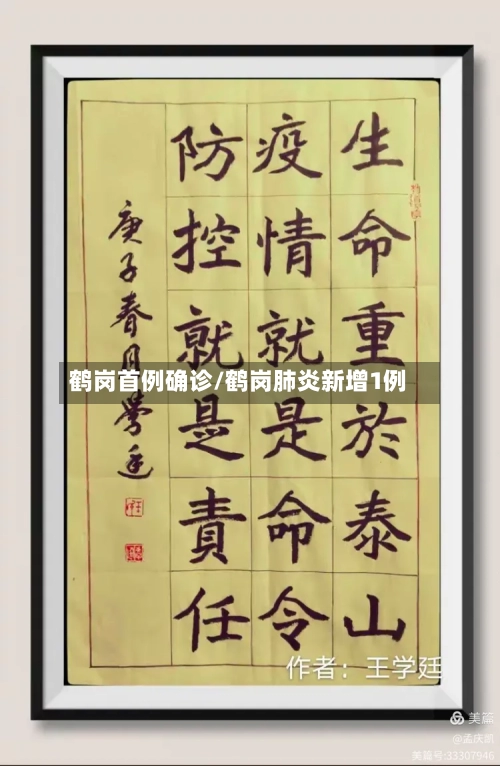 生命重於泰山
疫情就是命令
防控就是責任
庚子春月學廷
鹤岗首例确诊/鹤岗肺炎新增1例
作者：王学廷
美篇
@孟庆凯
美篇号:33307946